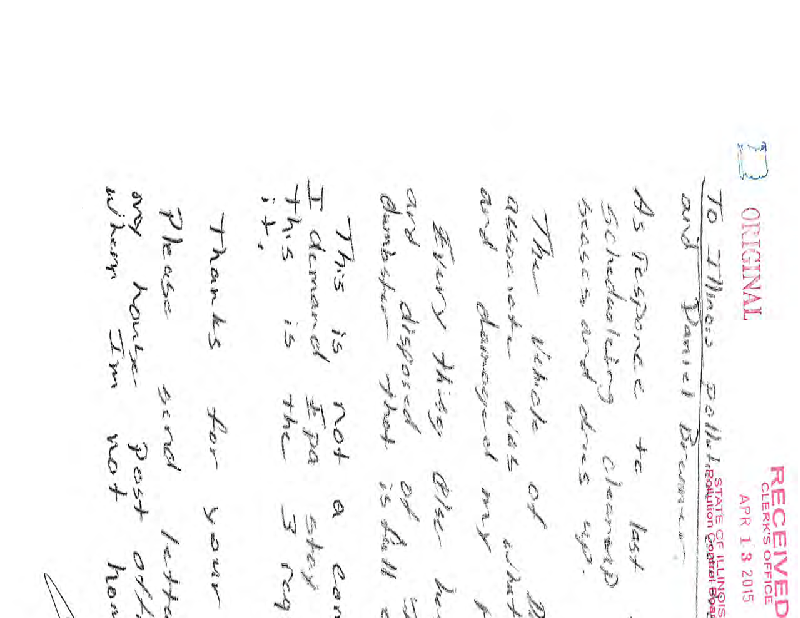 ORIGINAL
RECEIVED
CLERK'S OFFICE
APR 13 2015
STATE OF ILLINOIS
Pollution Control Boar
To Illinois pollut
and Daniel
As responce to last
Scheduleing cleanup
and dries up.
The Vehicle of
associate was what
and damaged my
Every thing else
and disposed of
dumbster that is full
This is not a con
I demand Ipa stay
this is the 3 req
it.
Thanks for your
Please send lette
my house post off
when Im not hom